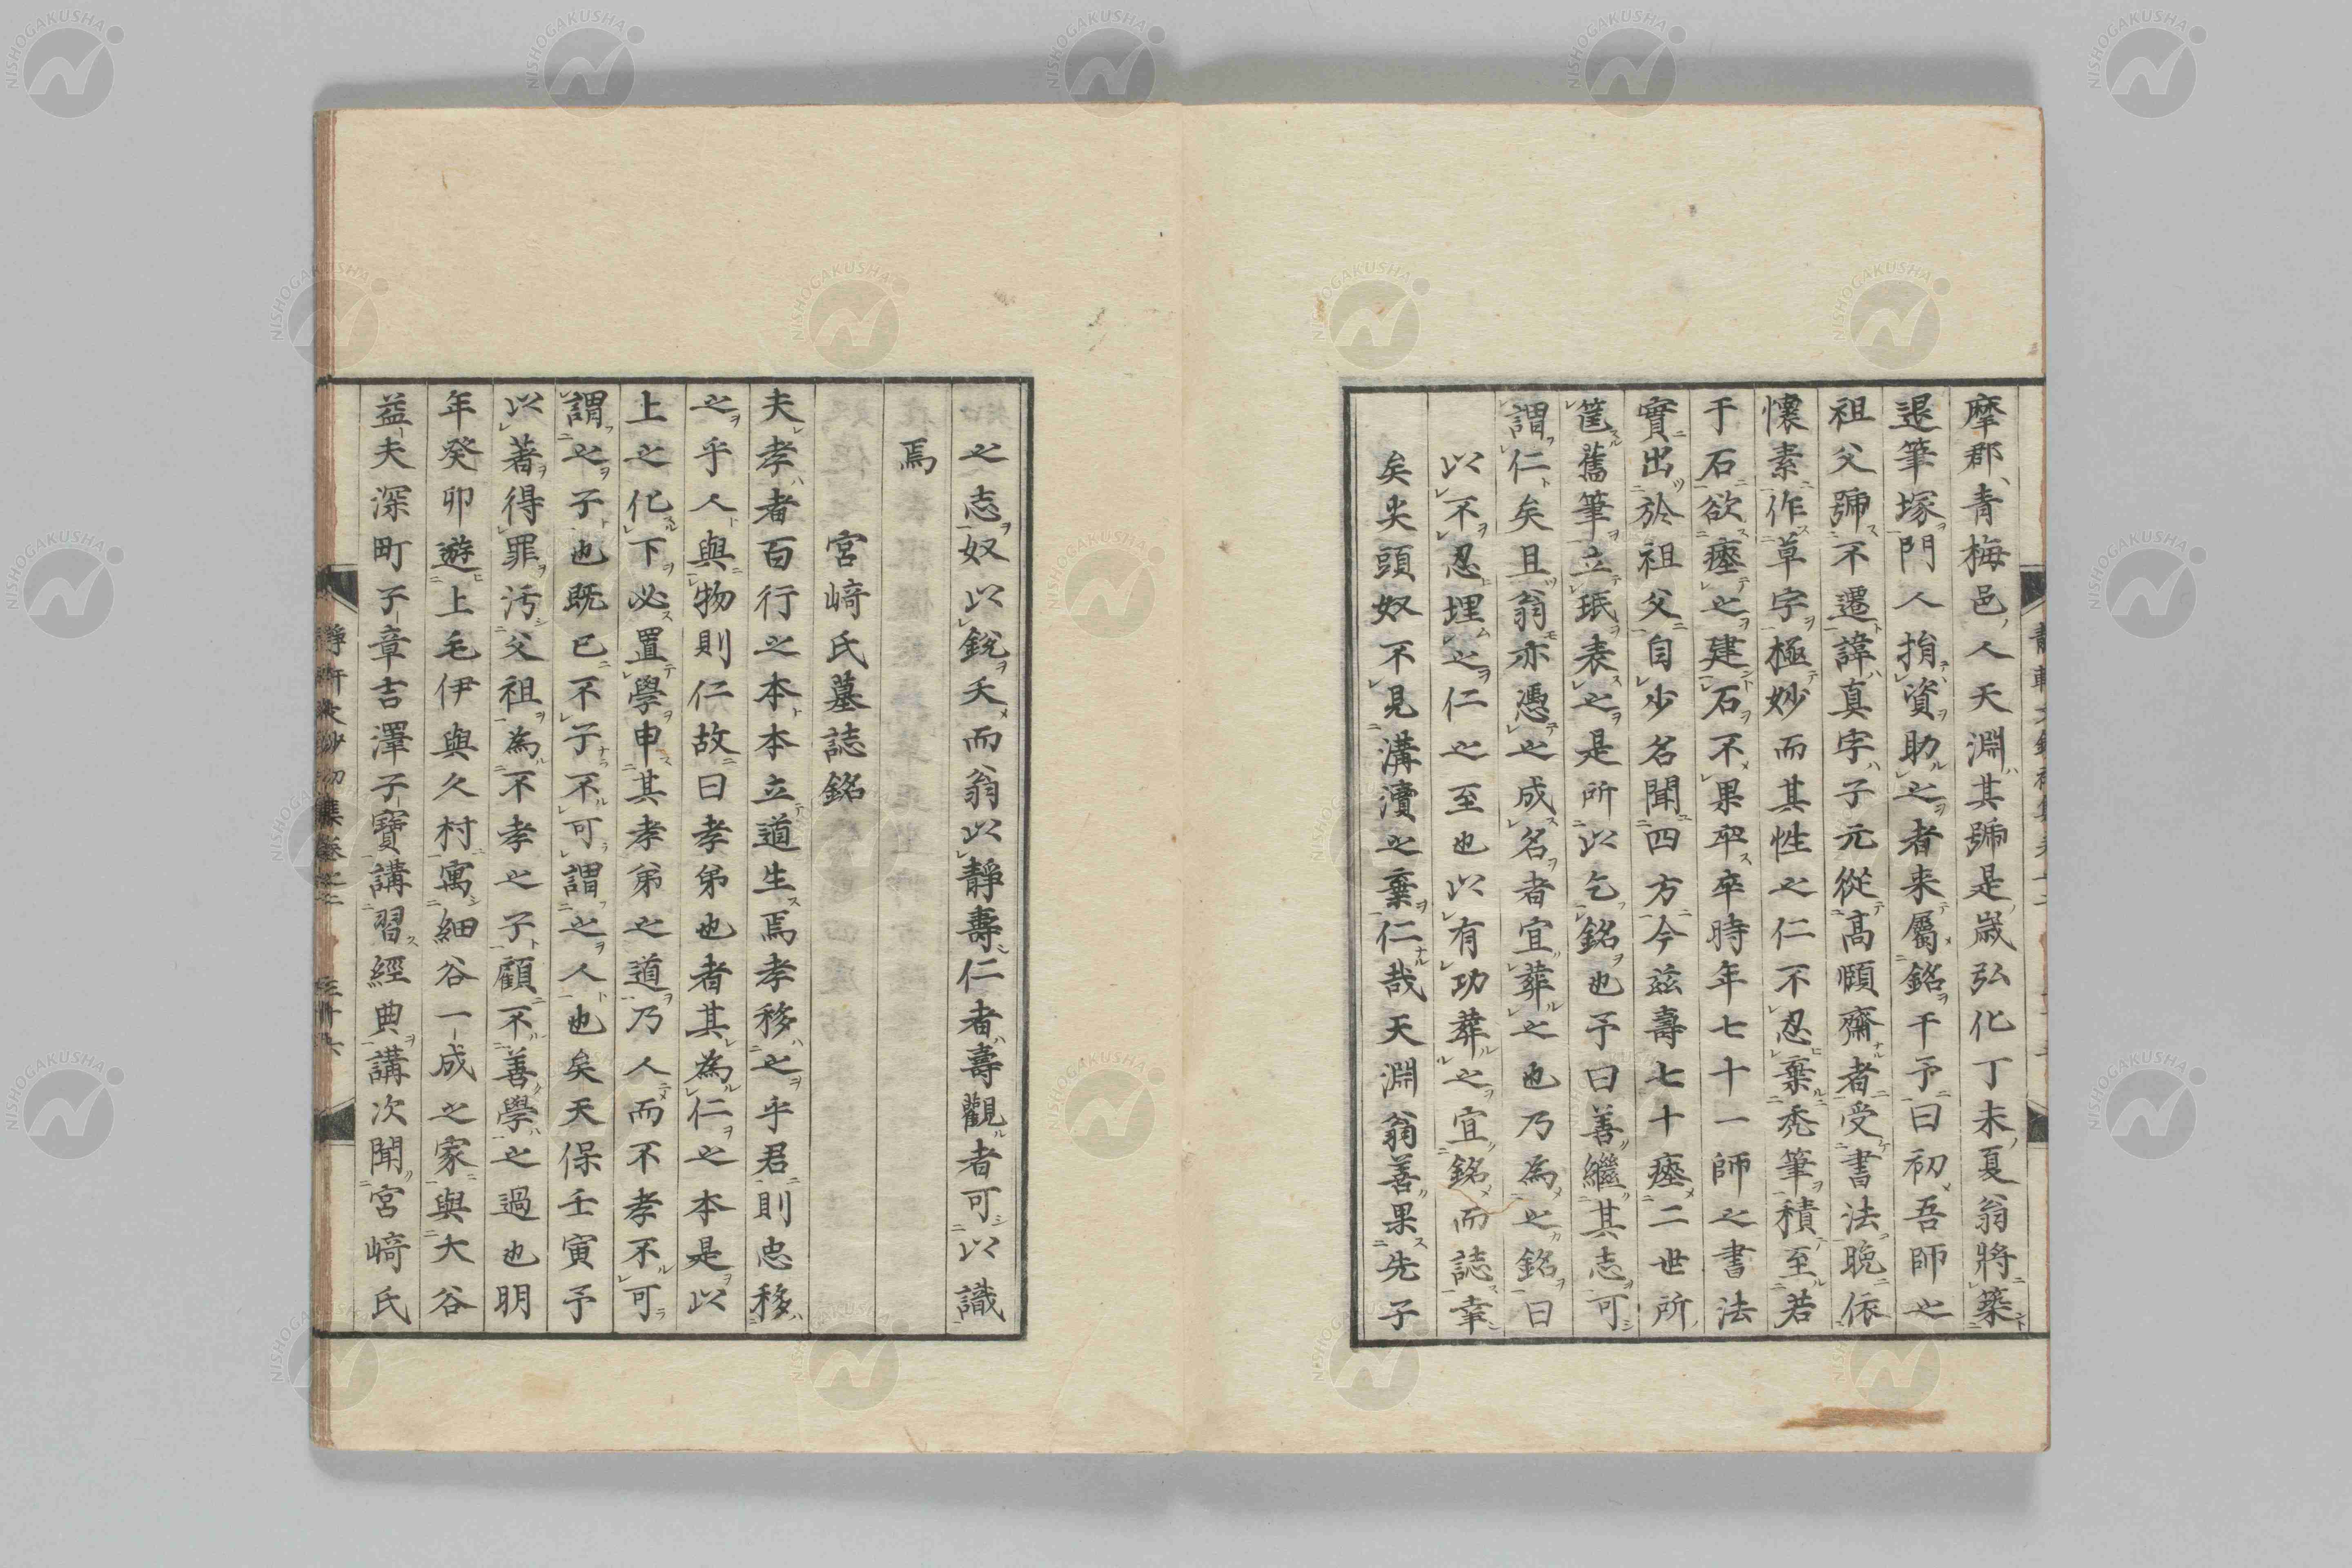 摩郡青梅邑人天淵其號是歲弘化丁未夏翁將築
退筆塚門人捐資助之者来屬銘于予曰初吾師之
祖父號不遷諱真字子元從高頤齋者受書法晚依
懷素作草字極妙而其性之仁不忍棄禿筆積至若
干石欲瘞之建石不果卒卒時年七十一師之書法
實出於祖父自少名聞四方今茲壽七十瘞二世所
筐舊筆立珉表之是所以乞銘也予曰善繼其志可
謂仁矣且翁亦憑之成名者宜葬之也乃為之銘曰
以不忍埋之仁之至也以有功葬之宜銘而誌幸
矣尖頭奴不見溝瀆之棄仁哉天淵翁善果先子
之志奴以銳夭而翁以靜壽仁者壽觀者可以識
焉
宮﨑氏墓誌銘
夫孝者百行之本本立道生焉孝移之乎君則忠移
之乎人與物則仁故曰孝弟也者其為仁之本是以
上之化下必置學申其孝弟之道乃人而不孝不可
謂之子也既已不子不可謂之人也矣天保壬寅予
以著得罪汚父祖為不孝之子顧不善學之過也明
年癸卯遊上毛伊與久村寓細谷一成之家與大谷
益夫深町子章吉澤子寶講習經典講次聞宮﨑氏
NISHOGAKUSHA